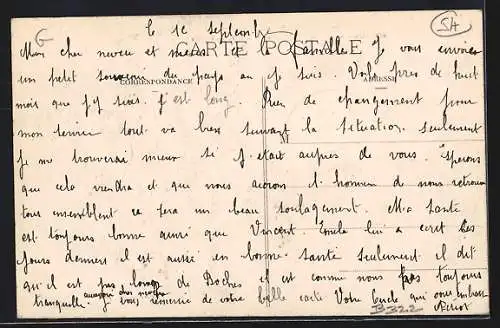 le 1e Septembre
G
SA
CARTE POSTALE
CORRESPONDANCE
ADRESSE
Mon cher neveu et nieces et la famille Je vous envoies
un petit souvenir du pays au je suis. Voila pres de huit
mois que j'y suis. C'est long. Rien de changement pour
mon service tout va bien suivant la situation. Seulement
M
je me trouverai mieux si j'etait aupres de vous. Esperons
que cela viendra et que nous aurons l'honneur de nous retrouver
tous ensemblent ce sera un beau soulagement. Ma Santé
est toujours bonne ainsi que Vincent. Emile lui a ecrit les
jours derniers il est aussi en bonne santé seulement il dit
qu'il est pas loin de Boches il est comme nous pas toujours
tranquille. Je vous remercie de votre belle carte Votre Oncle qui vous embrasse
B322